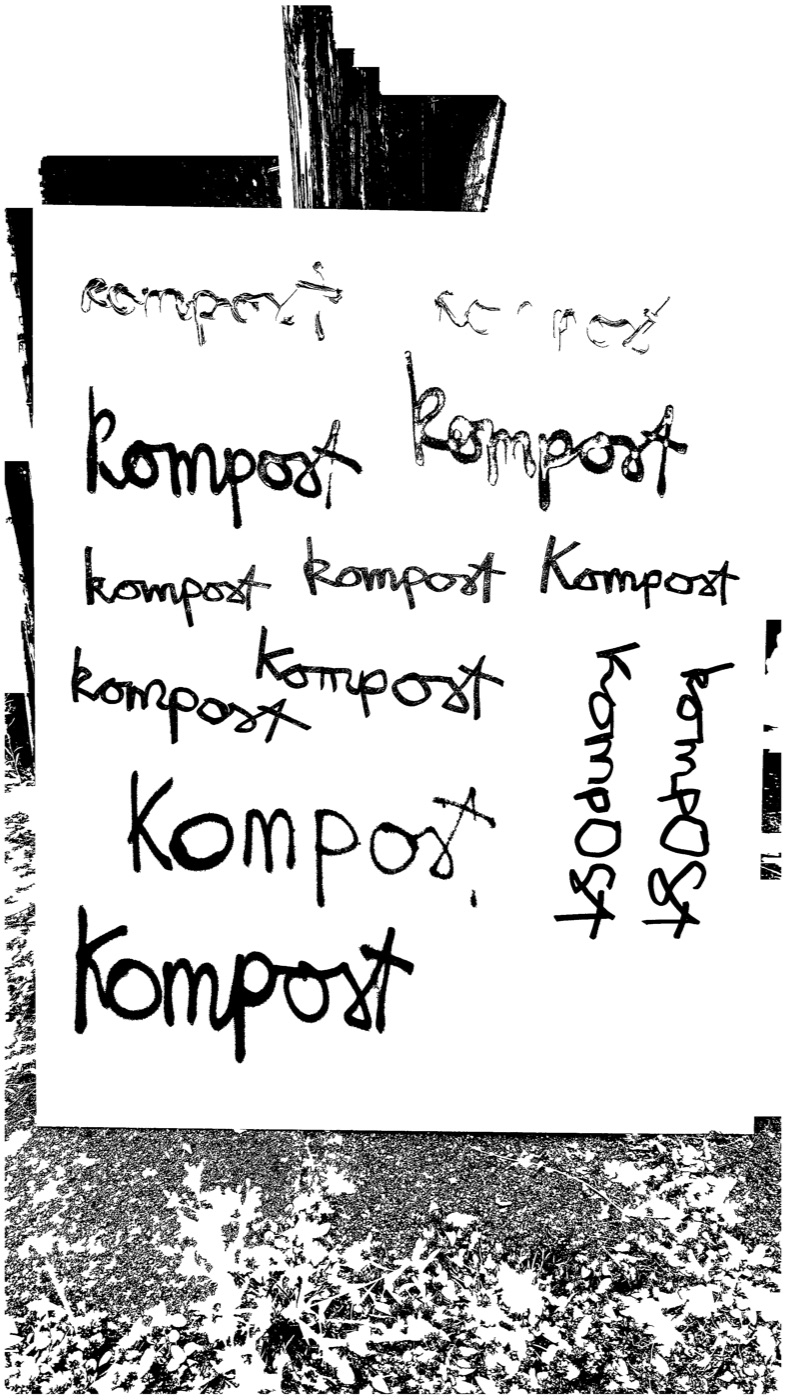 kompost
kompost kompost
kompost kompost Kompost
kompost Kompost
Kompost
Kompost
kompost
kompost